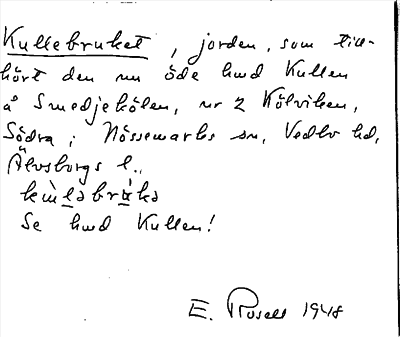 Kullebruket, jorden, som till-
hört den nu öde hmd Kullen
å Smedjekölen, nr 2 Kölviken,
Södra, i Nössemarks sn, Vedbo hd,
Älvsborgs l..
Se hmd Kullen!
E. Rosell 1948